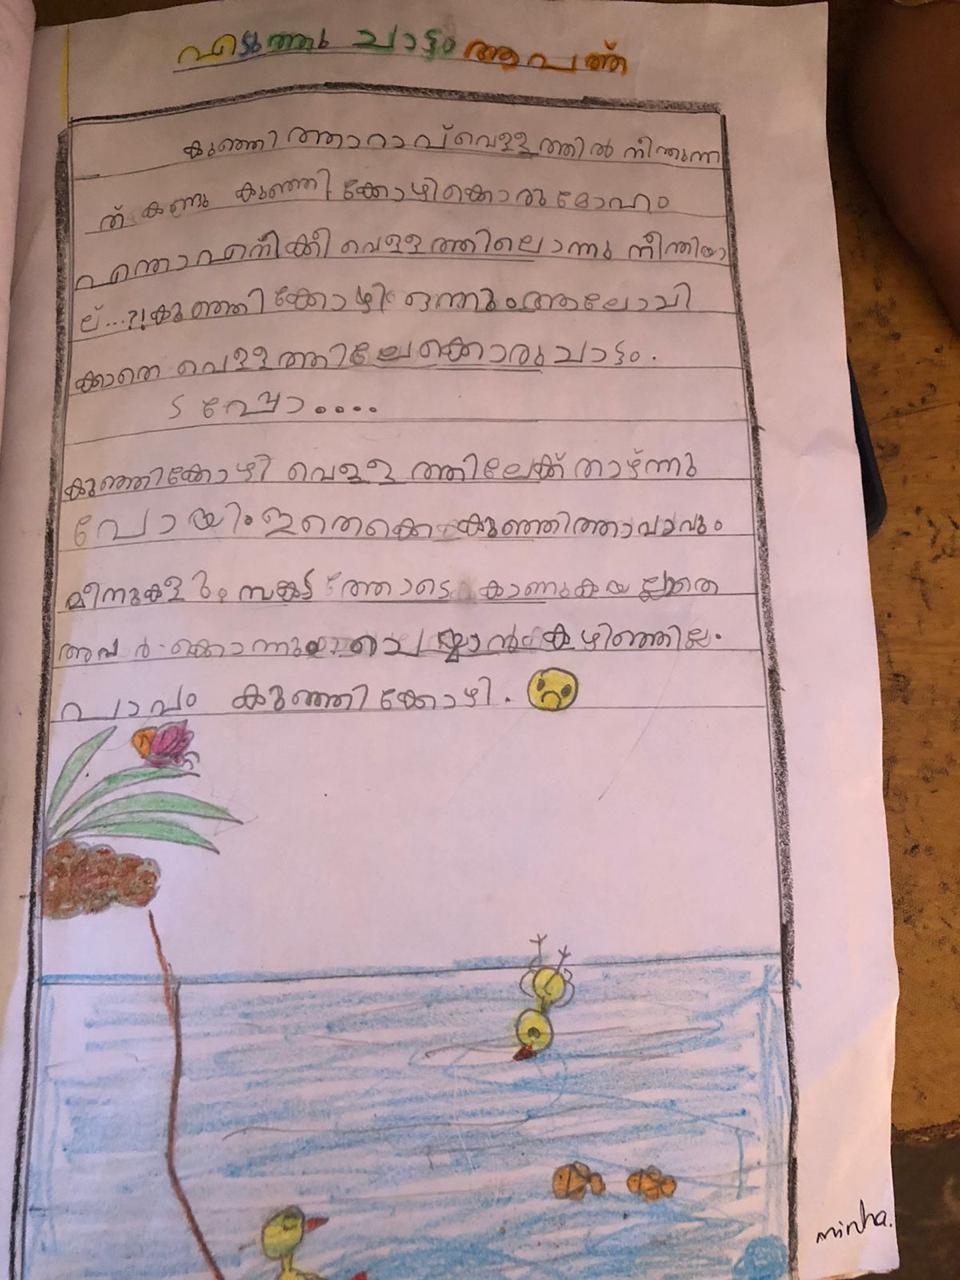 എടുത്തു ചാട്ടം ആപത്ത്
കുഞ്ഞി ത്താറാവ് വെള്ളത്തിൽ നീന്തുന്ന
ത് കണ്ടു കുഞ്ഞി ക്കോഴിക്കൊരു മോഹം
എന്താ എനിക്കീ വെള്ളത്തിലൊന്നു നീന്തിയാ
ല്...?! കുഞ്ഞി ക്കോഴി ഒന്നും ആലോചി
ക്കാതെ വെള്ളത്തിലേക്കൊരു ചാട്ടം.
s പ്പോ....
കുഞ്ഞിക്കോഴി വെള്ള ത്തിലേക്ക് താഴ്ന്നു
പോയി. ഇതൊക്കെ കുഞ്ഞിത്താവാവും
മീനുകളും സങ്കട ത്തോടെ കാണുകയല്ലാതെ
അവർക്കൊന്നും ചെയ്യാൻ കഴിഞ്ഞില്ല.
പാവം കുഞ്ഞി ക്കോഴി.
minha.